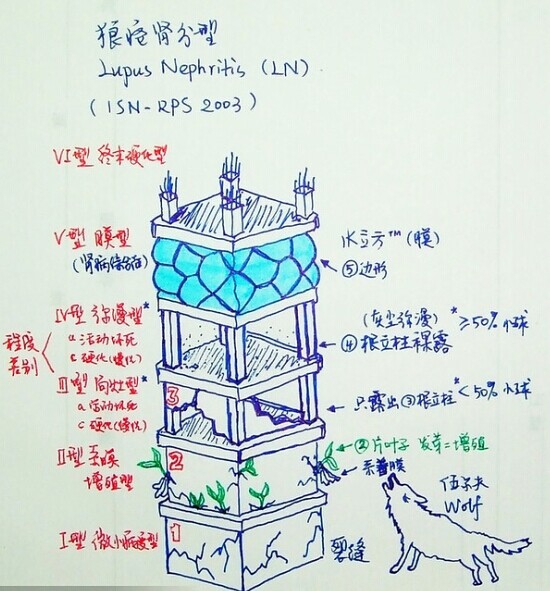 狼疮肾分型
Lupus Nephritis (LN)
(ISN-RPS 2003)
VI型 终末硬化型
V型 膜型
(肾病综合征)
水立方™(膜)
⑤边形
IV型 弥漫型*
a 活动坏死
c 硬化(慢化)
(灰尘弥漫)*≥50%小球
④根立柱裸露
程度
差别
III型 局灶型*
a 活动坏死
c 硬化(慢化)
3
只露出③根立柱*<50%小球
II型 系膜
增殖型
2
②片叶子 发芽=增殖
系膜
伍尔夫
Wolf
I型 微小病变型
1
裂缝